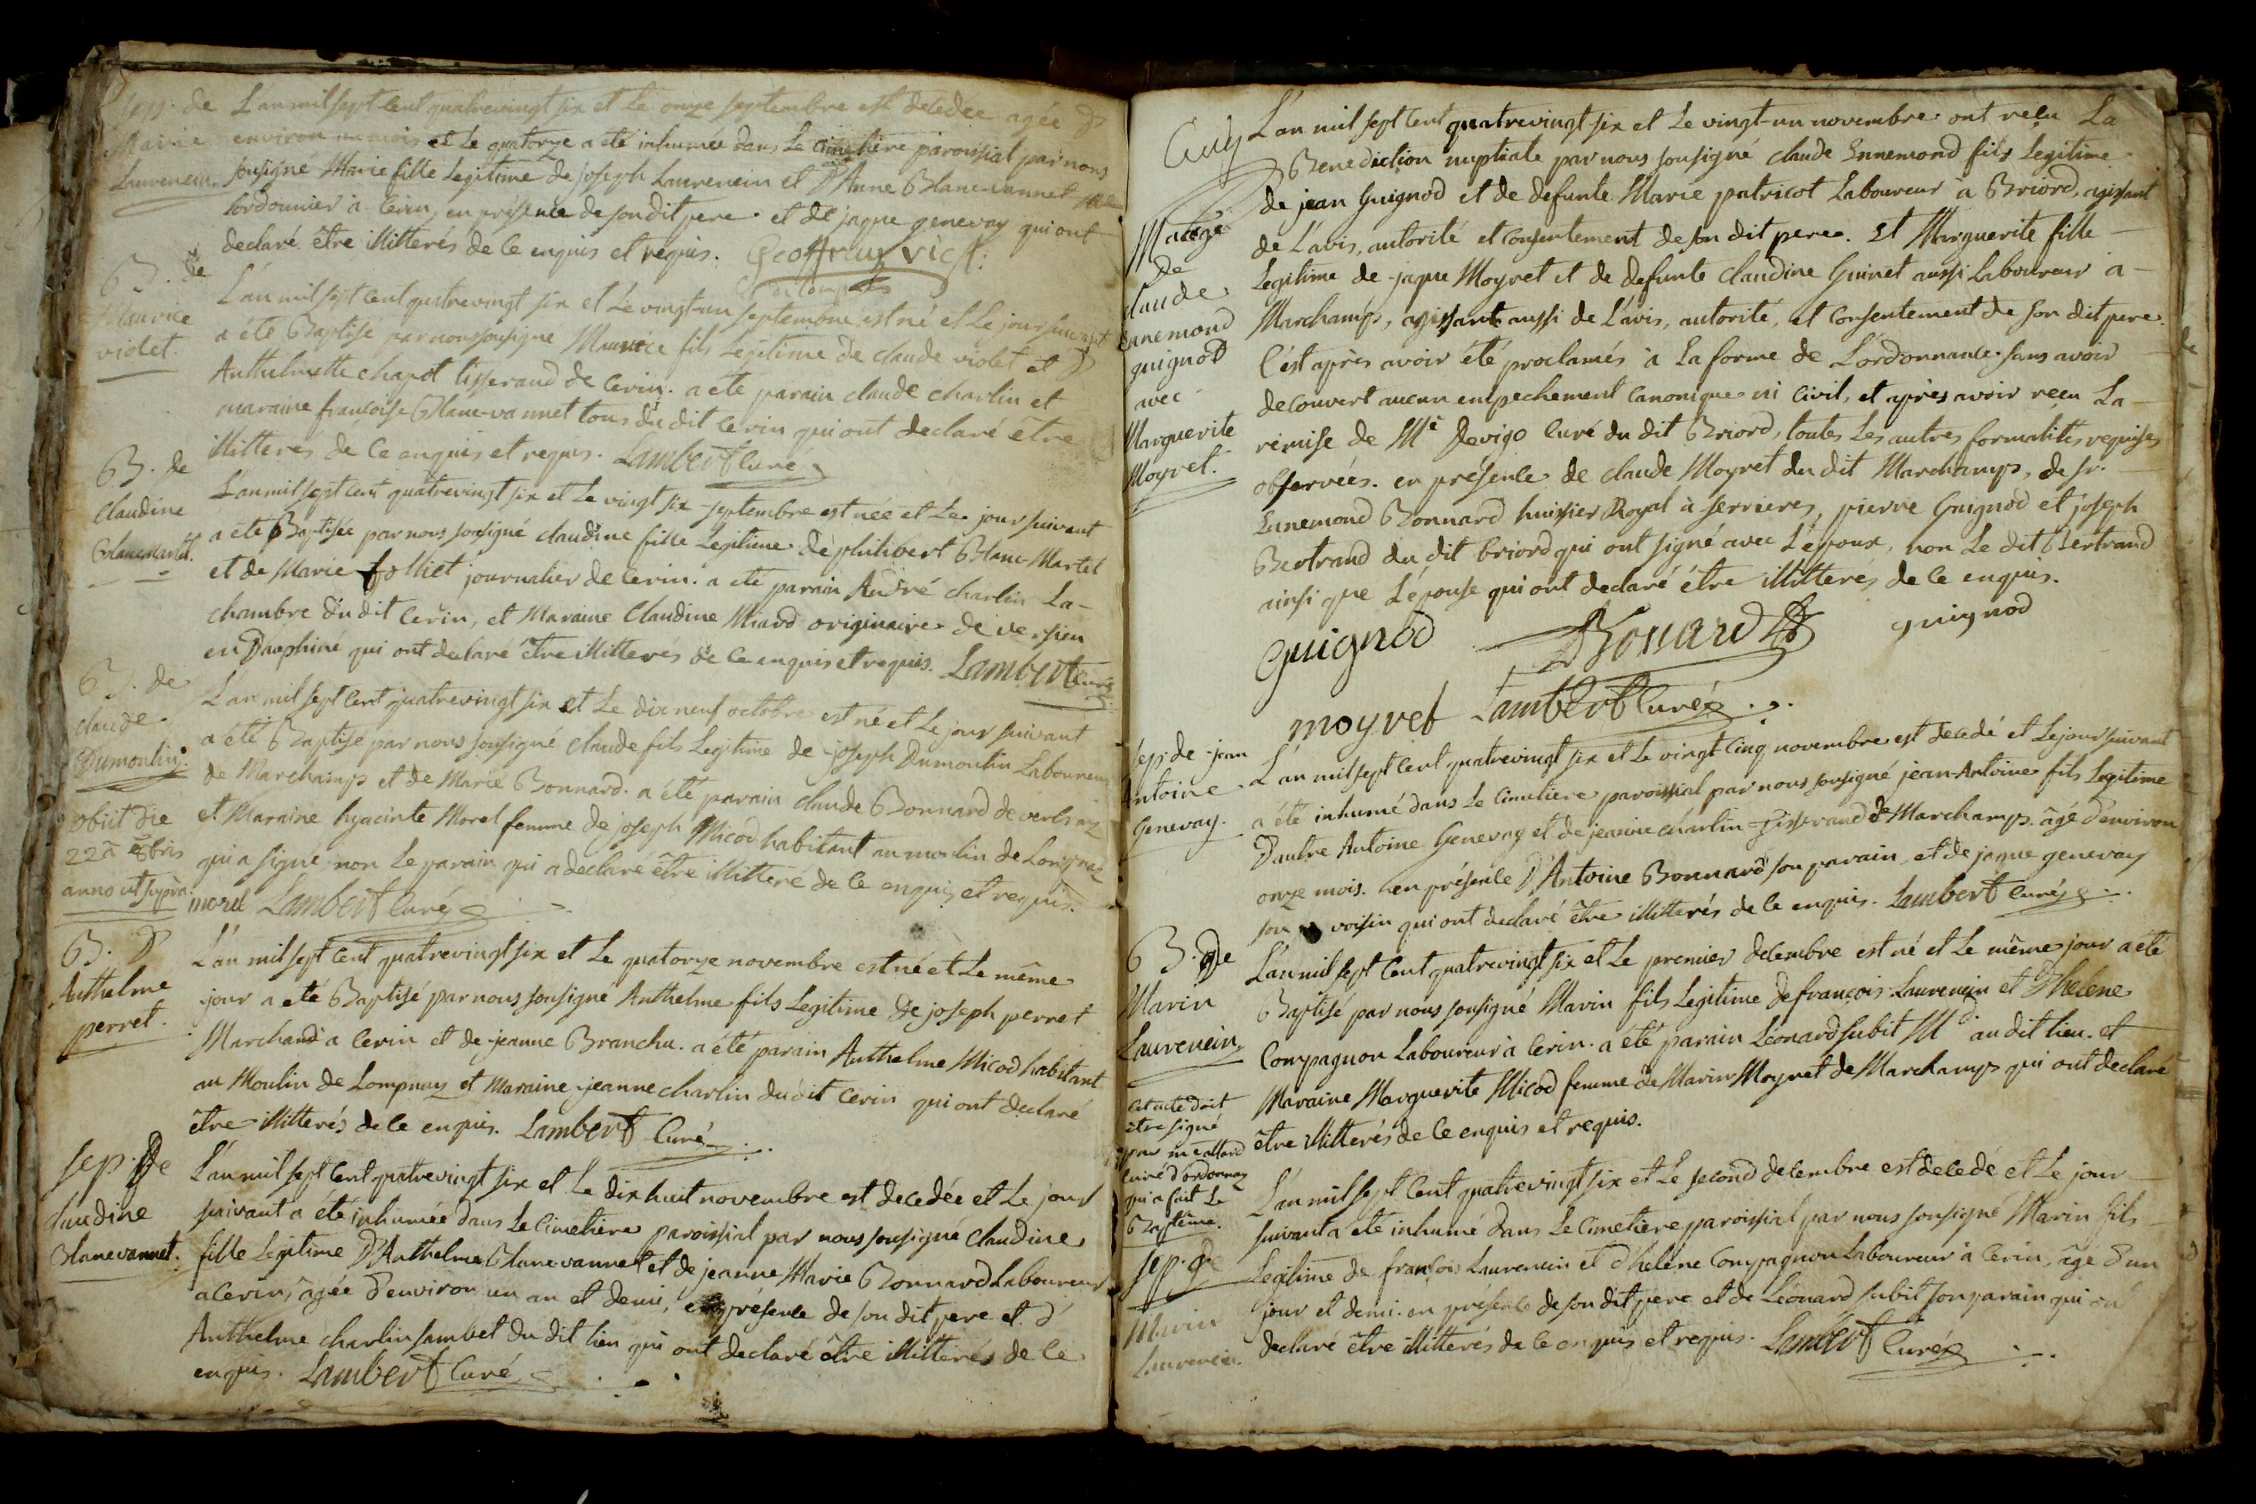 Sep. de
Marie
Laurencin
L'an mil sept cent quatrevingt six et le onze septembre est decedée agée d'
environ mois et le quatorze a été inhumée dans le cimetière paroissial par nous
sousigné Marie fille legitime de joseph Laurencin et d'Anne Blanc-vannet
Cordonnier à Cerin, en présence de son dit pere et de jaque genevay qui ont
declaré être illitterés de ce enquis et requis. Geoffray vic.
B. de
Maurice
violet.
L'an mil sept cent quatrevingt six et le vingt-un septembre, est né et le jour suivant
a été Baptisé par nous sousigné Maurice fils Legitime de claude violet et d'
Anthelmette chapot tisserand de Cerin. a été parain claude charlin et
maraine françoise Blanc-vannet tous du dit Cerin qui ont declaré être
illitterés de ce enquis et requis. Lambert Curé
B. de
Claudine
Blancmartel.
L'an mil sept cent quatrevingt six et le vingt six septembre est née et le jour suivant
a été Baptisée par nous sousigné claudine fille Legitime de philibert Blanc-Martel
et de Marie folliet journalier de Cerin. a été parain André charlin La-
chambre du dit Cerin, et Maraine Claudine Miard originaire de versieu
en Dauphiné qui ont declaré être illitterés de ce enquis et requis. Lambert Curé
B. de
claude
Dumoulin.
obiit die
22a 8bris
anno ut supra.
L'an mil sept cent quatrevingt six et le dix neuf octobre est né et le jour suivant
a été Baptisé par nous sousigné claude fils Legitime de joseph Dumoulin Laboureur
de Marchamps et de Marie Bonnard. a été parain claude Bonnard de
et Maraine hyacinte Morel femme de joseph Micod habitant au moulin de
qui a signé non le parain qui a declaré être illitteré de ce enquis et requis.
morel Lambert Curé
B. d'
Anthelme
perret.
L'an mil sept cent quatrevingt six et le quatorze novembre est né et le même
jour a été Baptisé par nous sousigné Anthelme fils Legitime de joseph perret
Marchand a Cerin et de jeanne Branchu. a été parain Anthelme Micod habitant
au Moulin de Lompnay et Maraine jeanne charlin du dit Cerin qui ont declaré
être illitterés de ce enquis. Lambert Curé
Sep. de
claudine
Blancvannet.
L'an mil sept cent quatrevingt six et le dix huit novembre est decedée et le jour
suivant a été inhumée dans le cimetiere paroissial par nous sousigné Claudine
fille Legitime d'Anthelme Blancvannet et de jeanne Marie Bonnard Laboureur
a Cerin, agée d'environ un an et demi, en présence de son dit pere et d'
Anthelme charlin jambet du dit lieu qui ont declaré être illitterés de ce
enquis. Lambert Curé
Mariage
de
claude
ennemond
guignod
avec
Marguerite
Moyret.
L'an mil sept cent quatrevingt six et le vingt-un novembre ont reçu La
Benediction nuptiale par nous sousigné claude Ennemond fils Legitime
de jean Guignod et de defunte Marie patricot Laboureur à Briord, agissant
de L'avis, autorité et consentement de son dit pere. Et Marguerite fille
Legitime de jaque Moyret et de defunte claudine Guinet aussi Laboureur à
Marchamps, agissant aussi de L'avis, autorité, et consentement de son dit pere.
C'est après avoir été proclamés à la forme de L'ordonnance sans avoir
decouvert aucun empechement canonique ni civil, et après avoir reçu La
remise de Mr Devigo Curé du dit Briord, toutes les autres formalités requises
observées. en présence de claude Moyret du dit Marchamps, de Sr.
Ennemond Bonnard huissier Royal à serrieres, pierre Guignod et joseph
Bertrand du dit briord qui ont signé avec L'époux, non Le dit Bertrand
ainsi que L'épouse qui ont declaré être illitterés de ce enquis.
Guignod Bonard guignod
moyret Lambert Curé
Sep. de jean
Antoine
Genevay.
L'an mil sept cent quatrevingt six et le vingt cinq novembre est decedé et le jour suivant
a été inhumé dans le cimetiere paroissial par nous sousigné jean-Antoine fils Legitime
d'autre Antoine Genevay et de jeanne charlin Tisserand de Marchamps. âgé d'environ
onze mois. en présence d'Antoine Bonnard son parain, et de jaque genevay
son voisin qui ont declaré être illitterés de ce enquis. Lambert Curé
B. de
Marin
Laurencin
cet acte doit
être signé
par me allard
curé d'ordonnay
qui a fait Le
Baptême.
L'an mil sept cent quatrevingt six et le premier decembre est né et le même jour a été
Baptisé par nous sousigné Marin fils Legitime de françois Laurencin et d'helene
Compagnon Laboureur à Cerin. a été parain Léonard subit Md. au dit lieu. et
Maraine Marguerite Micod femme de Marin Moyret de Marchamps qui ont declaré
être illitterés de ce enquis et requis.
Sep. de
Marin
Laurencin.
L'an mil sept cent quatrevingt six et le second decembre est decedé et le jour
suivant a été inhumé dans le Cimetiere paroissial par nous sousigné Marin fils
Legitime de françois Laurencin et d'helene Compagnon Laboureur à Cerin, âgé d'un
jour et demi. en presence de son dit pere et de Léonard subit son parain qui ont
declaré être illitterés de ce enquis et requis. Lambert Curé